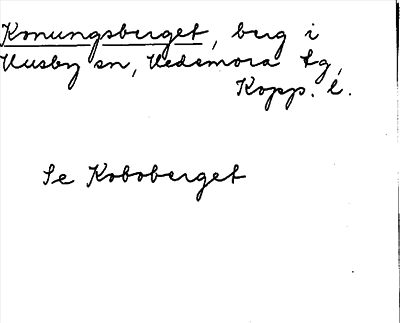 Konungsberget, berg i
Husby sn, Hedemora tg,
Kopp. l.
Se Koboberget